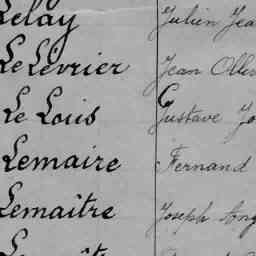 Lelay Julien Jea
Le Levrier Jean Olliv
Le Louis Gustave Jo
Lemaire Fernand
Lemaître Joseph Ang